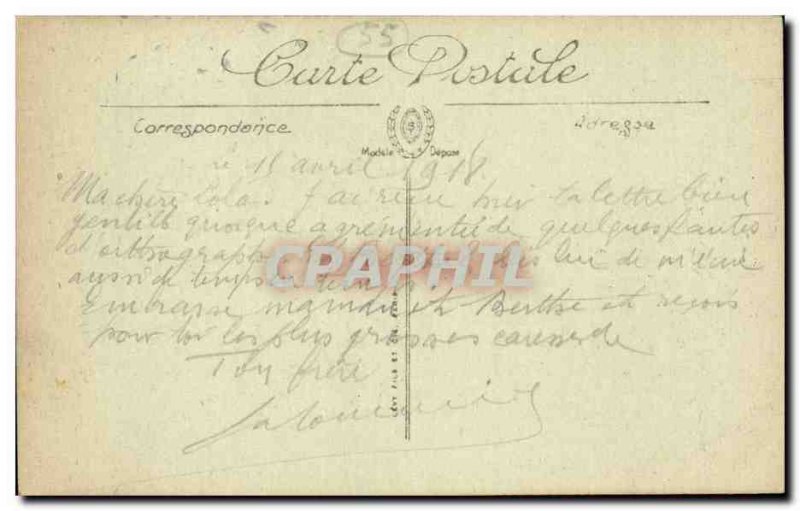 55
Carte Postale
Correspondance
Adresse
Modèle Déposé
le 15 avril 1918
Ma chère Lola. J'ai reçu hier ta lettre bien
gentille quoique agrémentée de quelques fautes
d'orthographe lui de m'écrire
aussi de temps en temps
Embrasse maman et Berthe et reçois
pour toi les plus grosses caresses de
Ton frère
CPAPHIL
LÉVY FILS ET CIE, PARIS